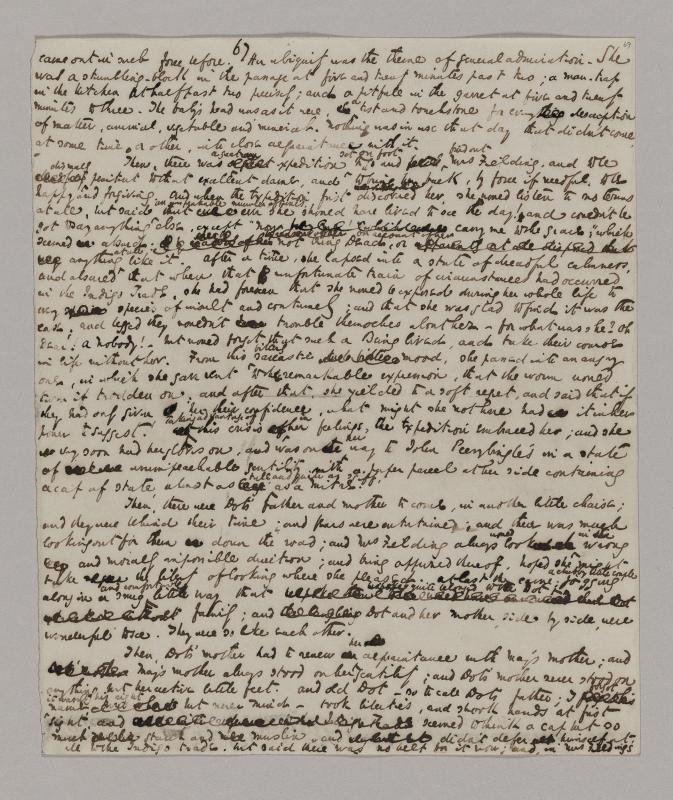 6)
came out in such force before. Her ubiquity was the theme of general admiration. She
was a stumbling-block in the passage at five and twenty minutes past two; a man-trap
in the kitchen at half past two precisely; and a pitfall in the garret at five and twenty
minutes to three. The baby's head was as it were, a test and touchstone for every description
of matter, animal, vegetable and mineral. Nothing was in use that day that didn't come
at some time or other, into close acquaintance with it.
Then, there was a great expedition set on foot to go and find out Mrs Fielding, and to be
dismally penitent to that excellent dame, and to bring her back, by force if needful, to be
happy and forgiving. And when the Expedition first discovered her, she would listen to no terms
at all, but said an unspeakable number of times, that ever she should have lived to see the day, and couldn't be
got to say anything else, except "now carry me to the grave;" which
seemed absurd, on account of her not being dead, or
anything actually like it. After a time, she lapsed into a state of dreadful calmness,
and observed that when that unfortunate train of circumstances had occurred
in the Indigo Trade, she had foreseen that she would be exposed during her whole life to
every species of insult and contumely; and that she was glad to find it was the
case; and begged they wouldn't trouble themselves about her – for what was she? Oh
dear! a nobody! – but would forget that such a being lived, and take their course
in life without her. From this bitterly sarcastic mood, she passed into an angry
one, in which she gave vent to the remarkable expression, that the worm would
turn if trodden on; and after that, she yielded to a soft regret, and said that if
they had only given her their confidence, what might she not have had it in her
power to suggest! Taking advantage of this crisis in her feelings, the Expedition embraced her; and she
very soon had her gloves on, and was on her way to John Peerybingle's in a state
of unimpeachable gentility, with a paper parcel at her side containing
a cap of state, almost as tall and quite as stiff, as a mitre.
Then, there were Dot's father and mother to come, in another little chaise;
and they were behind their time; and fears were entertained; and there was much
looking out for them down the road; and Mrs Fielding always would look in the wrong
and morally impossible direction; and being apprised thereof, hoped she might
take the liberty of looking where she pleased. At last they came; a chubby little couple jogging
along in a snug and comfortable little way that quite belonged to the Dot
family; and Dot and her mother, side by side, were
wonderful to see. They were so like each other.
Then, Dot's mother had to renew her acquaintance with May's mother; and
May's mother always stood on her gentility; and Dot's mother never stood on
anything but her active little feet. And old Dot – so to call Dot's father; I forgot
it wasn't his right name, but never mind – took liberties, and shook hands at first
sight, and seemed to think a cap but so
much starch and muslin, and didn't defer himself at
all to the Indigo trade, but said there was no help for it now; and, in Mrs Fielding's